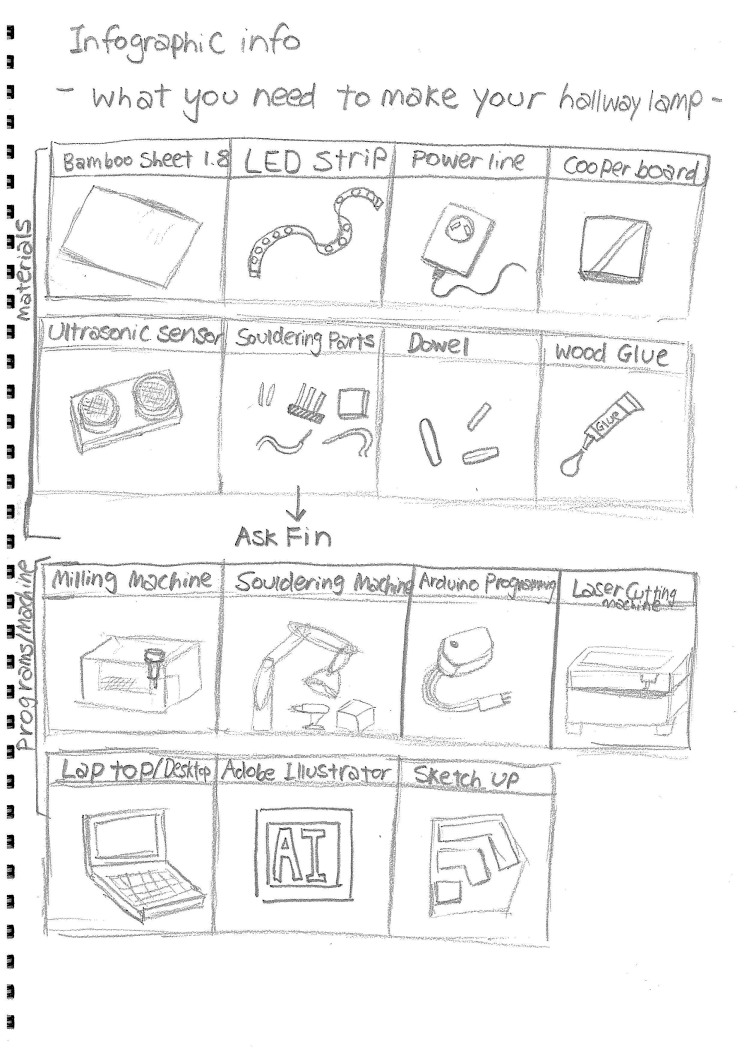 Infographic info
- What you need to make your hallway lamp -
Materials
Bamboo Sheet 1.8
LED Strip
Power line
Cooper board
Ultrasonic sensor
Souldering Parts
Dowel
Wood Glue
Glue
Ask Fin
Programs/Machine
Milling Machine
Souldering Machine
Arduino Programming
Laser Cutting
machine
Lap top/Desktop
Adobe Illustrator
Sketch up
AI